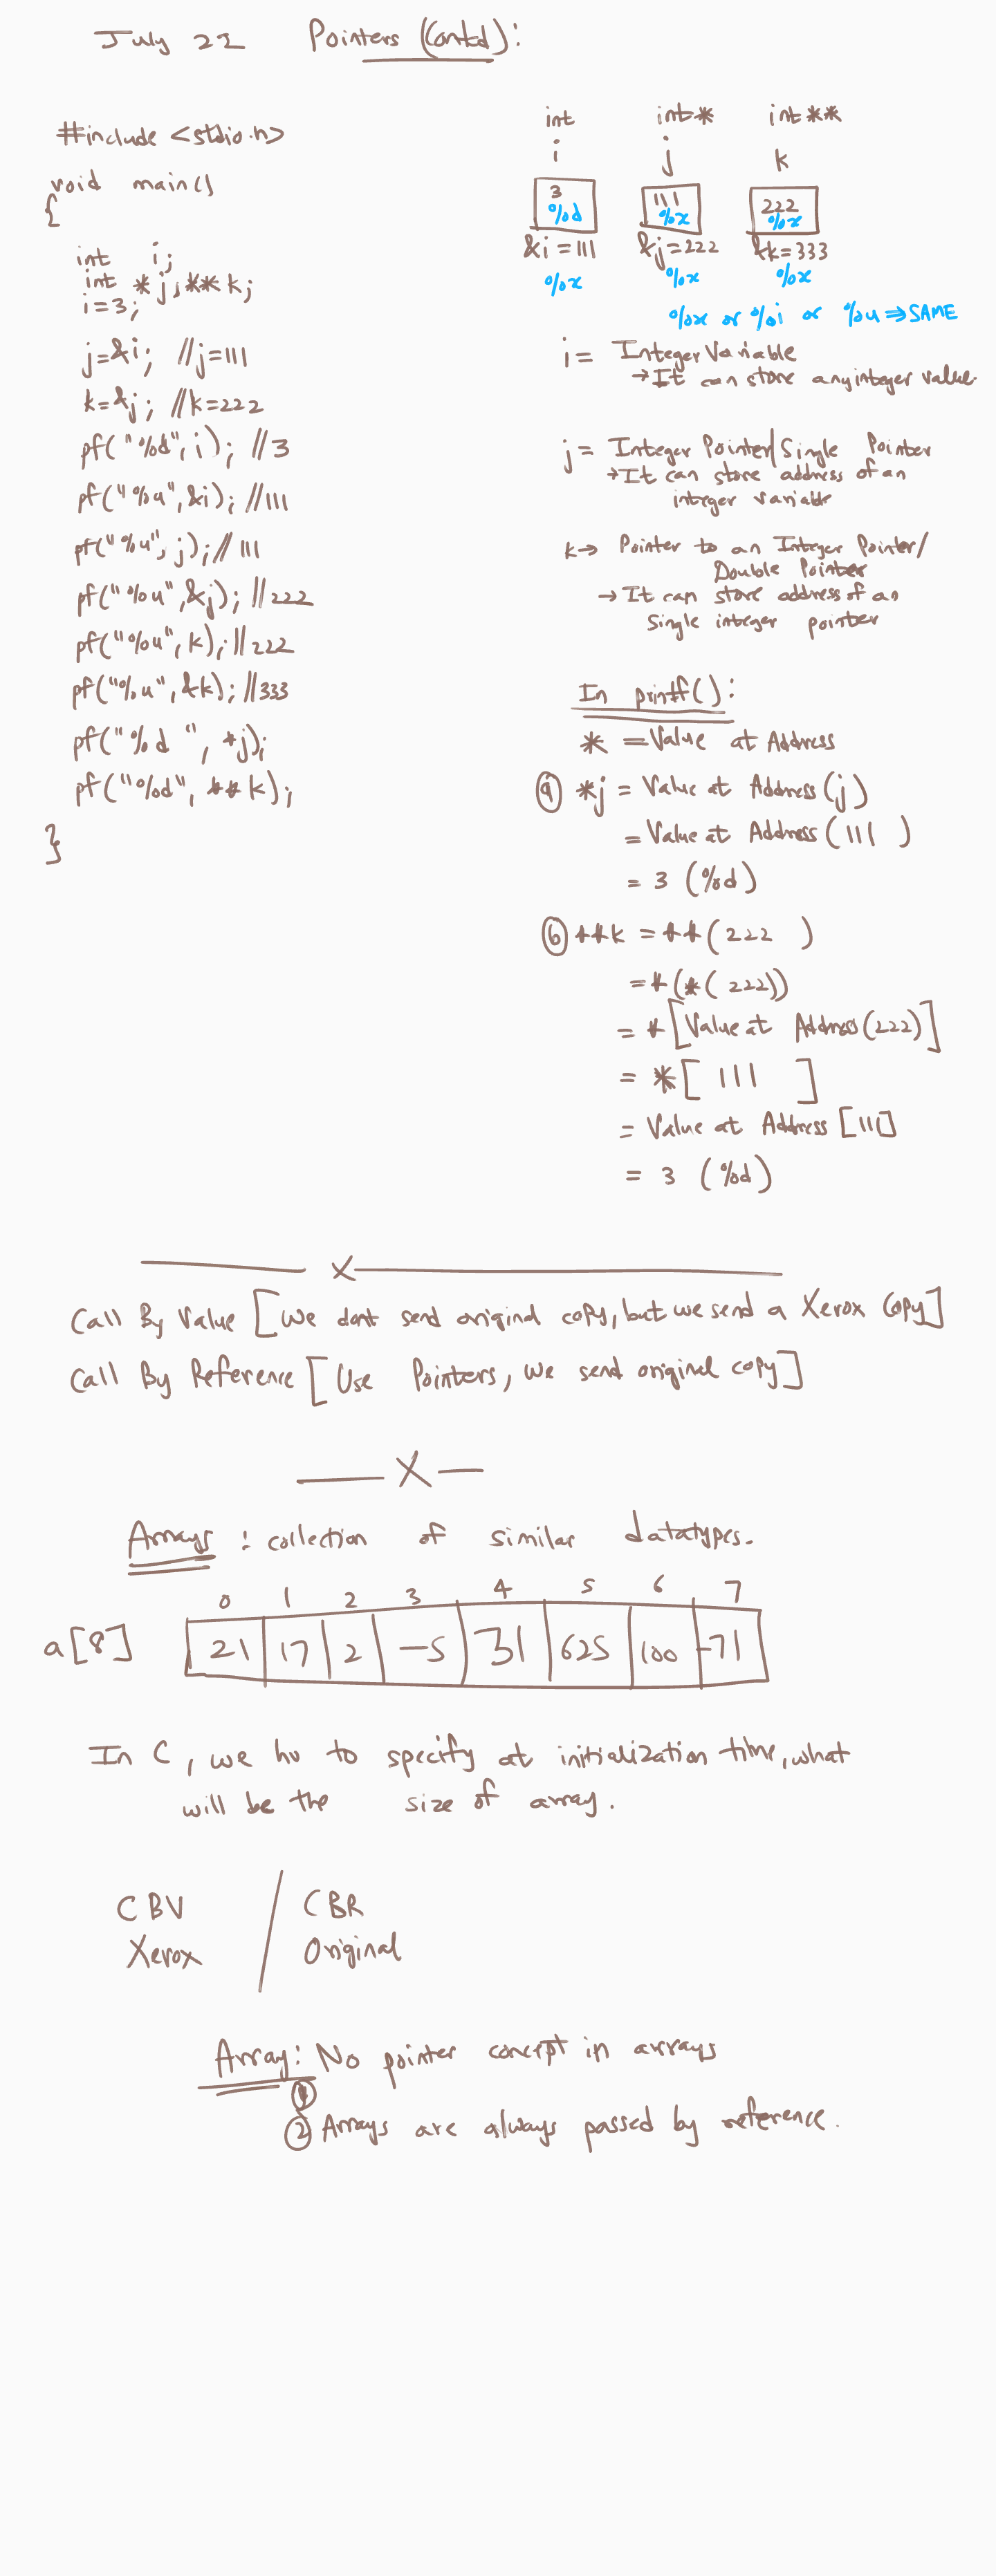 July 22 Pointers (Contd):
#include <stdio.h>
void main()
{
int i;
int *j, **k;
i=3;
j=&i; //j=111
k=&j; //k=222
pf("%d", i); //3
pf("%u", &i); //111
pf("%u", j); //111
pf("%u", &j); //222
pf("%u", k); //222
pf("%u", &k); //333
pf("%d ", *j);
pf("%d", **k);
}
int int* int**
i j k
3 111 222
%d %x %x
&i=111 &j=222 &k=333
%x %x %x
%x or %i or %u ⇒ SAME
i = Integer Variable
→ It can store any integer value.
j = Integer Pointer/Single Pointer
→ It can store address of an
integer variable
k → Pointer to an Integer Pointer/
Double Pointer
→ It can store address of an
single integer pointer
In printf():
* = Value at Address
a *j = Value at Address (j)
= Value at Address (111 )
= 3 (%d)
b **k = **(222 )
= *(*( 222))
= *[Value at Address(222)]
= *[ 111 ]
= Value at Address [111]
= 3 (%d)
X
Call By Value [We dont send original copy, but we send a Xerox Copy]
Call By Reference [Use Pointers, we send original copy]
X
Arrays : collection of similar datatypes.
0 1 2 3 4 5 6 7
a[8] 21 17 2 -5 31 625 100 -71
In C, we hv to specify at initialization time, what
will be the size of array.
CBV / CBR
Xerox Original
Array: No pointer concept in arrays
1
2 Arrays are always passed by reference.